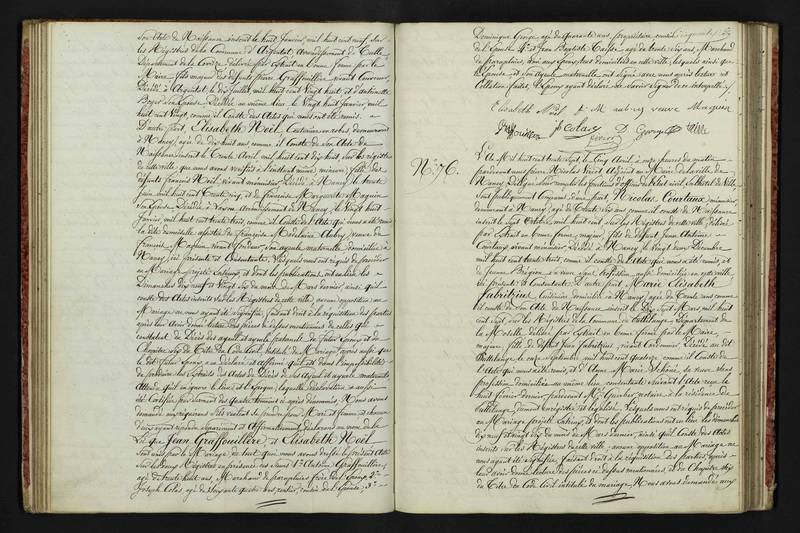 Son acte de Naissance inscrit le huit Janvier, mil huit cent neuf, sur
les Registres de la Commune d'Argentat, arrondissement de Tulle
Département de la Corrèze, délivré par Extrait en bonne forme par le
Maire, fils majeur des défunts Pierre Graffouillère, vivant
Décédé à Argentat, le dix Juillet mil huit cent vingt huit, et d'Antoinette
Son Epouse, Décédée au même lieu le Vingt huit Janvier, mil
huit cent vingt, comme il Conste des Actes qui nous ont été remis.
D'autre part, Elisabeth Noël, Couturière, au
à Nancy, âgée de dix huit ans comme il Conste de Son Acte de
Naissance inscrit le Trente Avril mil huit cent dix huit sur les registres
de cette ville que nous avons vérifiés à l'instant même, mineure, fille des
défunts François Noël, vivant menuisier, Décédé à Nancy le trente
Juin, mil huit cent Trente cinq, et de Françoise Marguerite Magnien
Son Epouse, Décédée à arrondissement de Nancy, le Vingt huit
Janvier, mil huit cent vingt trois, comme il Conste de l'Acte qui nous a été remis
la dite Demoiselle assistée de Françoise Madelaine Aubry, veuve de
François Magnien, vivant Son ayeule maternelle, domiciliée à
Nancy ici présente et Consentante. Lesquels nous ont requis de procéder
au Mariage projeté entr'eux, et dont les publications ont eu lieu les
Dimanches dix neuf et Vingt Six du mois de Mars dernier, ainsi qu'il
conste des Actes inscrits sur les Registres de cette ville, aucune opposition au
Mariage ne nous ayant été signifiée, faisant droit à la réquisition des parties
après leur avoir donné lecture des pièces ci dessus mentionnées, de celles qui
constatent le Décès des ayeuls et ayeule paternels de la future Epouse et du
Chapitre Six du Titre du Code Civil, intitulé du Mariage, après aussi que
le dit futur Epoux a déclaré et affirmé qu'il est dans l'impossibilité
de produire les Extraits des Actes de Décès de ses ayeuls et ayeules maternels
Attendu qu'il ignore le lieu et l'époque, laquelle déclaration a aussi
été Certifiée par serment des quatre témoins ci après dénommés. Nous avons
demandé aux requérans s'ils veulent se prendre pour Mari et femme, et chacun
d'eux ayant répondu séparément et Affirmativement, déclarons au nom de la
Loi, que Jean Graffouillère et Elisabeth Noël
Sont unis par le Mariage, de tout quoi nous avons dressé le présent Acte
Sur les deux Registres en présence des Sieurs 1° Antoine Graffouillère,
âgé de trente huit ans, Marchand de parapluies, frère de l'Epoux, 2°
Joseph Colas, âgé de Soixante quatre ans, rentier, cousin de l'Epouse, 3°
Dominique George, âgé de quarante ans, propriétaire, cousin
de l'Epouse 4° et Jean Baptiste âgé de trente Six ans, Marchand
de parapluies, ami aux Epoux, tous domiciliés en cette ville, lesquels ainsi que
l'Epouse et son ayeule maternelle, ont Signé avec nous après lecture et
Collation faites, l'Epoux ayant déclaré ne Savoir signer de ce interpellé.
Elisabeth Noël M aubry veuve Magnien
J Colas D George
N° 76.
L'An Mil huit cent trente Sept, le Cinq Avril, à onze heures du matin
pardevant nous Pierre Nicolas Virlet Adjoint au Maire de la ville de
Nancy, Délégué pour remplir les fonctions d'officier de l'état civil, en l'hôtel de ville
Sont publiquement Comparus d'une part Nicolas Courteaux, menuisier,
demeurant à Nancy, âgé de trente Six ans, comme il conste de Naissance
inscrit le Sept Octobre, mil huit cent, sur les Registres de cette ville, délivré
par Extrait en bonne forme, majeur, fils de défunt Jean Antoine
Courteaux vivant menuisier, Décédé à Nancy, le Vingt deux Décembre
mil huit cent trente trois, comme il conste de l'Acte qui nous a été remis, et
de Jeanne Bregeon, sa veuve, sans Profession, aussi domiciliée en cette ville,
ici présente et Consentante. D'autre part Marie Elisabeth
Fabritius, Cuisinière, domiciliée à Nancy, âgée de Trente ans comme
il conste de Son Acte de Naissance inscrit le Dix Sept Mars, mil huit
cent Sept, sur les Registres de la Commune de Puttelange, Département de
la Moselle, délivré par Extrait en bonne forme par le Maire,
majeure, fille de défunt Jean Fabritius, vivant Cordonnier, Décédé au dit
Puttelange, le onze Septembre, mil huit cent quatorze, comme il Conste de
l'Acte qui nous a été remis, et d'Anne Marie sa veuve, Sans
profession, domiciliée au même lieu, consentante suivant l'Acte reçu le
huit février dernier pardevant M° notaire à la résidence de
Puttelange, dûment enregistré et légalisé. Lesquels nous ont requis de procéder
au Mariage projeté entr'eux, et dont les publications ont eu lieu les Dimanches
dix neuf et vingt Six du mois de Mars dernier, ainsi qu'il Conste des Actes
inscrits sur les Registres de cette ville, aucune opposition au Mariage ne
nous ayant été signifiée, faisant droit à la réquisition des parties, après
leur avoir donné lecture des pièces ci dessus mentionnées, et du Chapitre Six
du Titre du Code Civil intitulé du mariage, Nous avons demandé aux